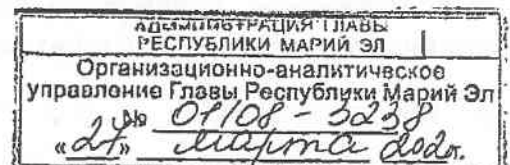 АДМИНИСТРАЦИЯ ГЛАВЫ
РЕСПУБЛИКИ МАРИЙ ЭЛ
Организационно-аналитическое
управление Главы Республики Марий Эл
№ 01/08 - 3238
«27» марта 202 г.